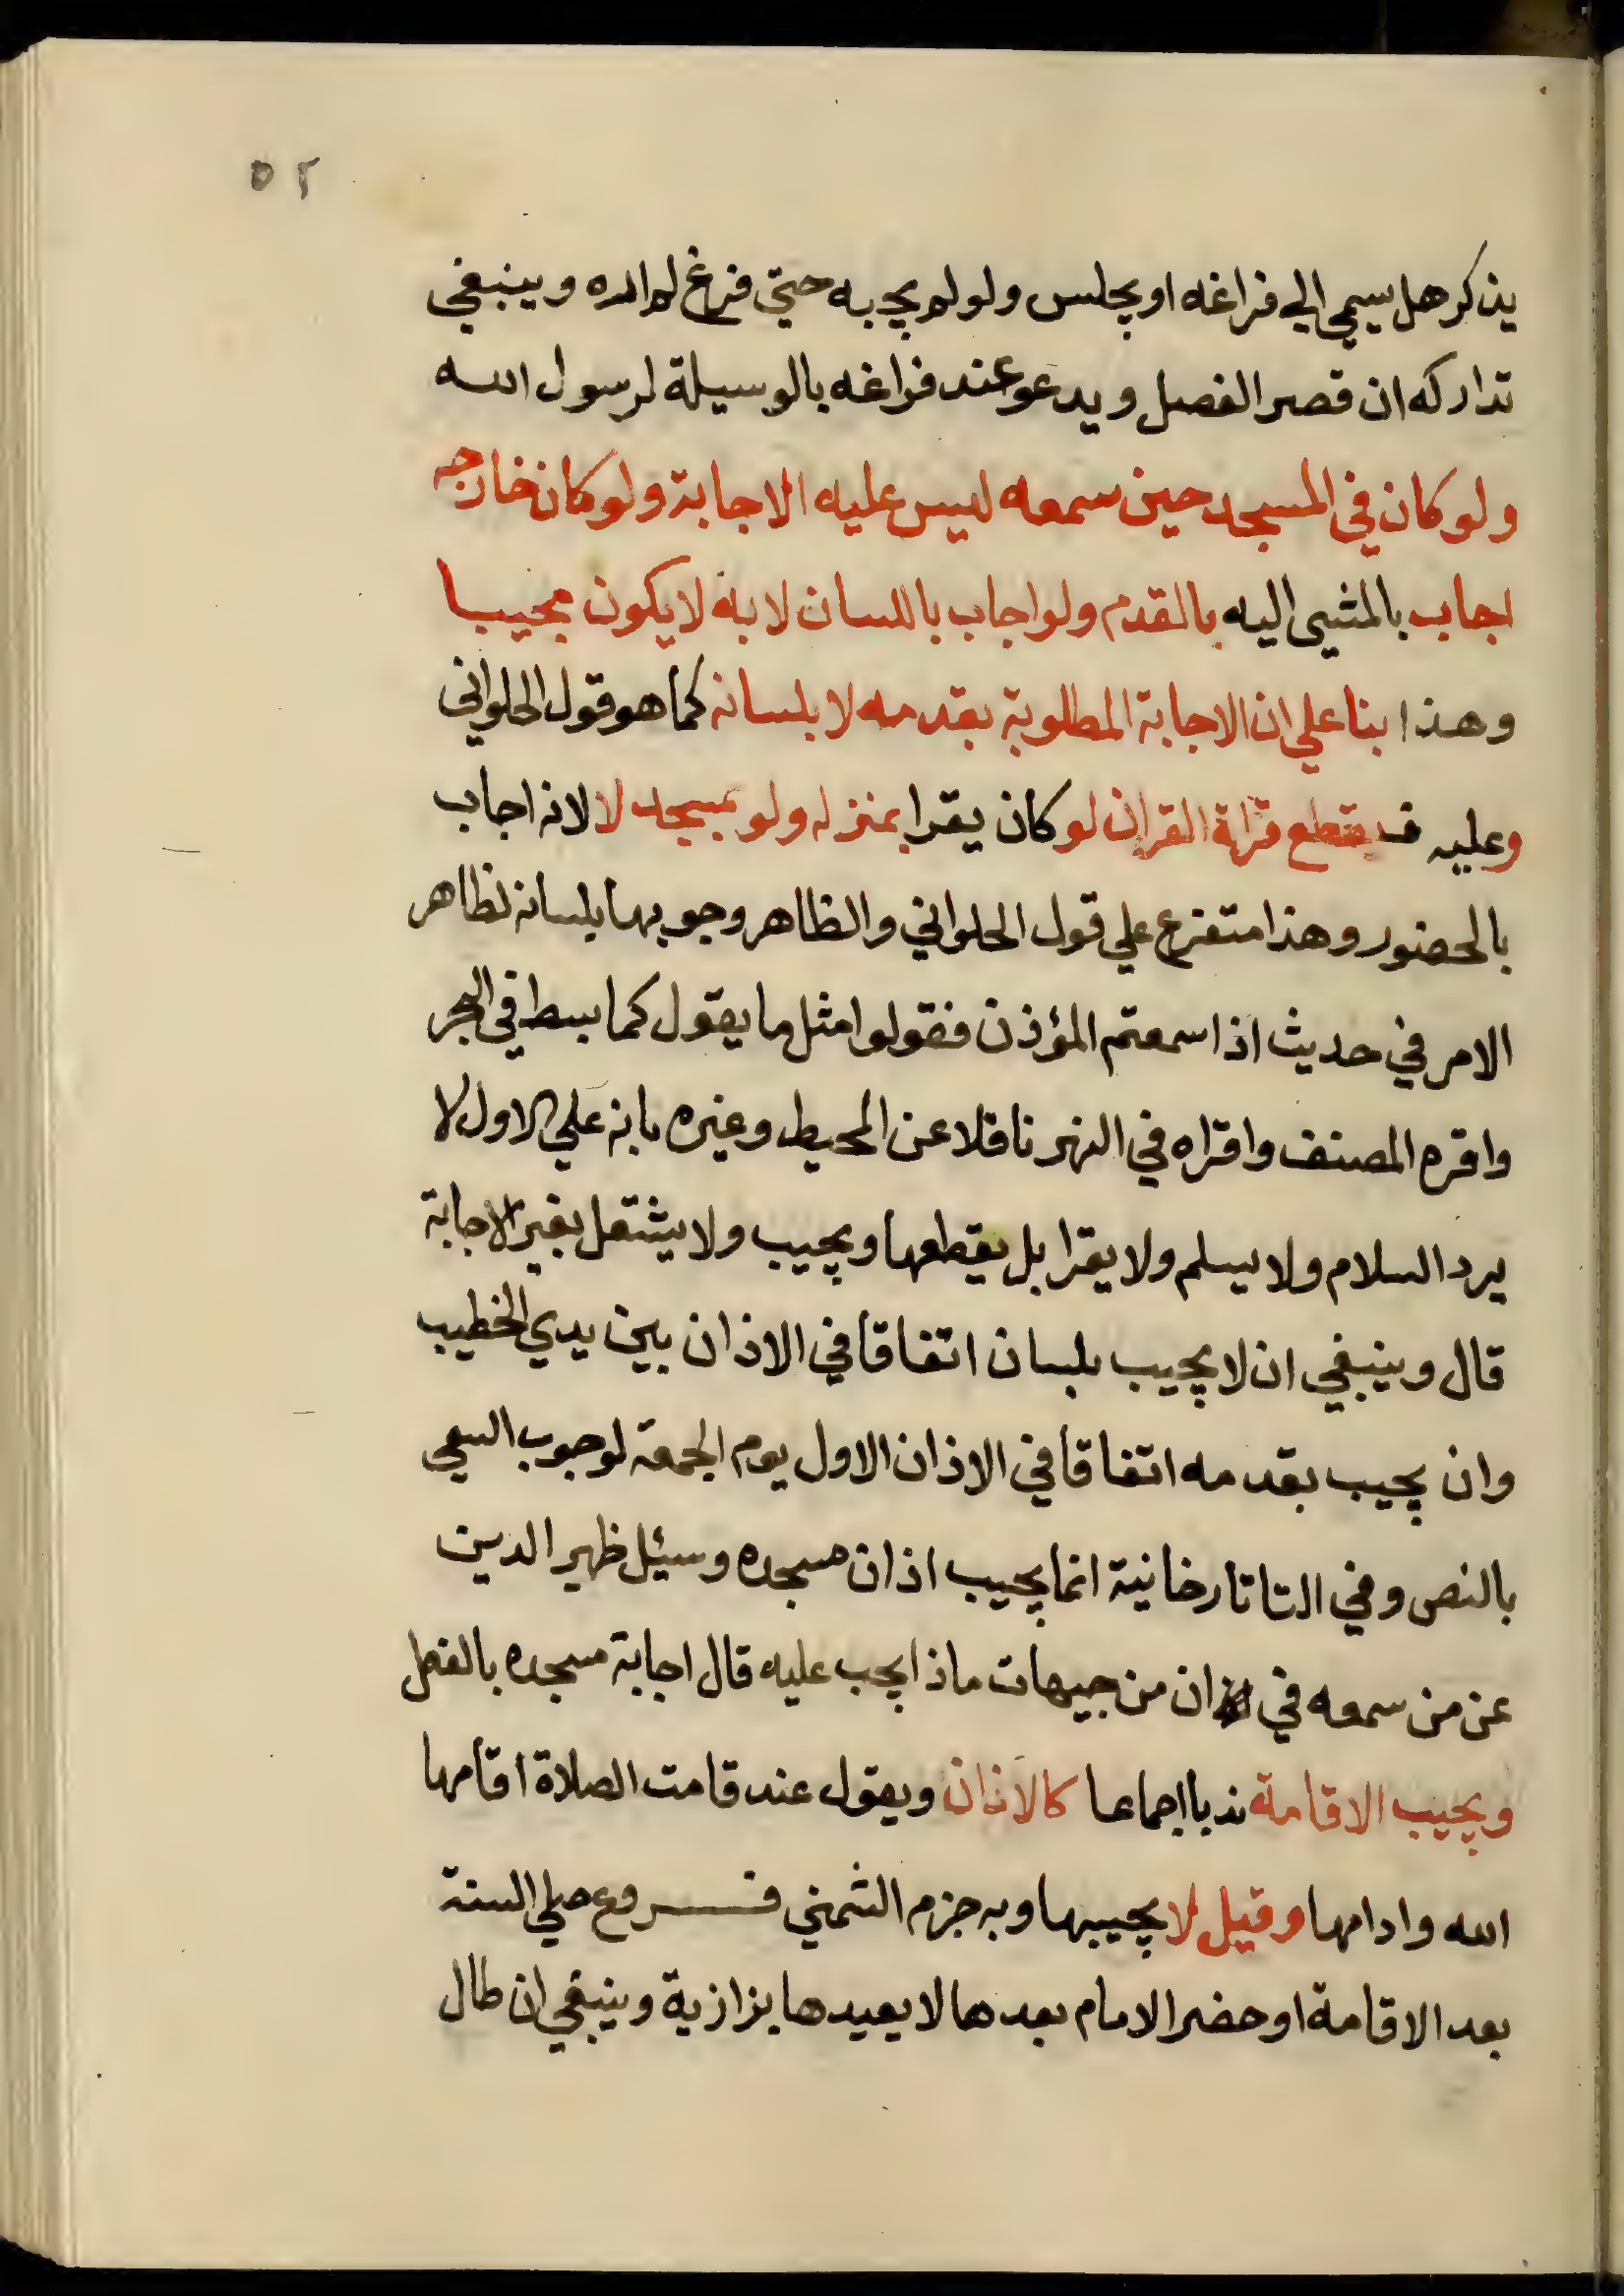 ٥٢
يذكر هل يسمي الي فراغه او يجلس ولو لم يجبه حتي فرغ لم اره وينبغي
تداركه ان قصر الفصل ويدعو عند فراغه بالوسيلة لرسول الله
ولو كان في المسجد حين سمعه ليس عليه الاجابة ولو كان خارجه
اجاب بالمشي اليه بالقدم ولو اجاب باللسان لا به لا يكون مجيبا
وهذا بنا علي ان الاجابة المطلوبة بقدمه لا بلسانه كما هو قول الحلواني
وعليه فيقطع قراة القران لو كان يقرا بمنزله ولو بمسجد لا لانه اجاب
بالحضور وهذا متفرع علي قول الحلواني والظاهر وجوبها بلسانه لظاهر
الامر في حديث اذا سمعتم المؤذن فقولوا مثل ما يقول كما بسط في البحر
واقره المصنف واقراه في النهر ناقلا عن المحيط وغيره بانه علي الاول لا
يرد السلام ولا يسلم ولا يقرا بل يقطعها ويجيب ولا يشتغل بغير الاجابة
قال وينبغي ان لا يجيب بلسان اتفاقا في الاذان بين يدي الخطيب
وان يجيب بقدمه اتفاقا في الاذان الاول يوم الجمعة لوجوب السعي
بالنص وفي التاتارخانية انما يجيب اذان مسجده وسئل ظهير الدين
عن من سمعه في ان من جيهات ماذا يجب عليه قال اجابة مسجده بالفعل
ويجيب الاقامة ندبا اجماعا كالاذان ويقول عند قامت الصلاة اقامها
الله وادامها وقيل لا يجيبها وبه جزم الشمني فروع صلي السنة
بعد الاقامة او حضر الامام بعدها لا يعيدها بزازية وينبغي ان طال